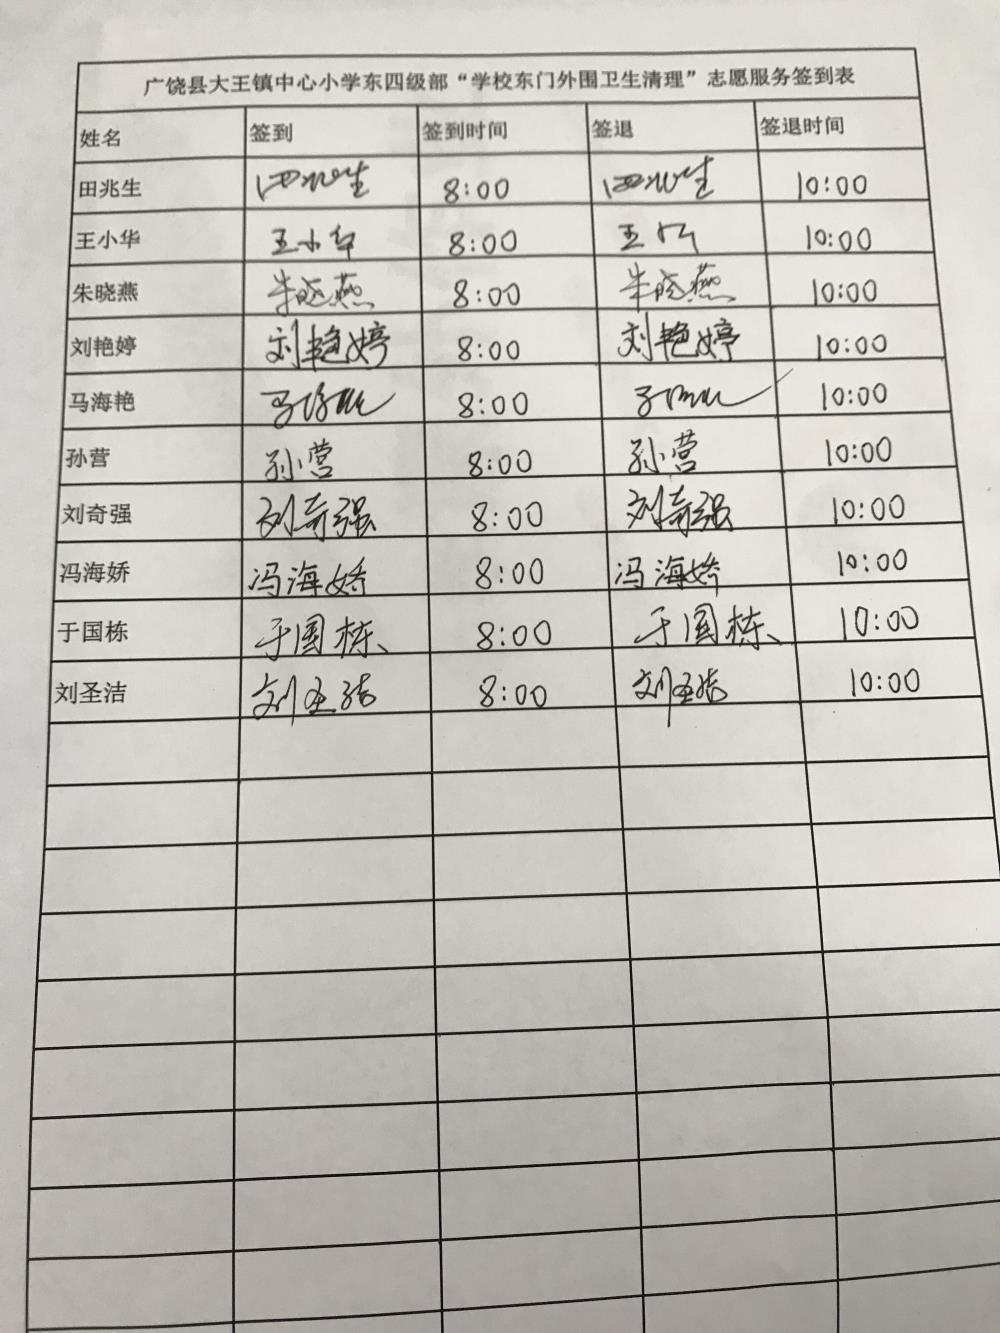 广饶县大王镇中心小学东四级部“学校东门外围卫生清理”志愿服务签到表
姓名 签到 签到时间 签退 签退时间
田兆生 田兆生 8:00 田兆生 10:00
王小华 王小华 8:00 王小华 10:00
朱晓燕 朱晓燕 8:00 朱晓燕 10:00
刘艳婷 刘艳婷 8:00 刘艳婷 10:00
马海艳 马海艳 8:00 马海艳 10:00
孙营 孙营 8:00 孙营 10:00
刘奇强 刘奇强 8:00 刘奇强 10:00
冯海娇 冯海娇 8:00 冯海娇 10:00
于国栋 于国栋 8:00 于国栋 10:00
刘圣洁 刘圣洁 8:00 刘圣洁 10:00